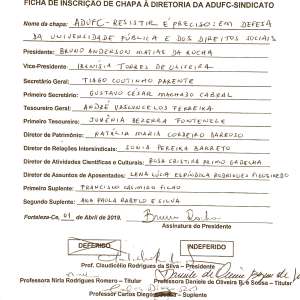 FICHA DE INSCRIÇÃO DE CHAPA À DIRETORIA DA ADUFC-SINDICATO
Nome da chapa: ADUFC-RESISTIR É PRECISO: EM DEFESA
DA UNIVERSIDADE PÚBLICA E DOS DIREITOS SOCIAIS
Presidente: BRUNO ANDERSON MATIAS DA ROCHA
Vice-Presidente: IRENÍSIA TORRES DE OLIVEIRA
Secretário Geral: TIAGO COUTINHO PARENTE
Primeiro Secretário: GUSTAVO CÉSAR MACHADO CABRAL
Tesoureiro Geral: ANDRÉ VASCONCELOS FERREIRA
Primeiro Tesoureiro: JUVÊNIA BEZERRA FONTENELE
Diretor de Patrimônio: NATÁLIA MARIA CORDEIRO BARROSO
Diretor de Relações Intersindicais: SONIA PEREIRA BARRETO
Diretor de Atividades Científicas e Culturais: ROSA CRISTINA PRIMO GADELHA
Diretor de Assuntos de Aposentados: LENA LÚCIA ESPÍNDOLA RODRIGUES FIGUEIREDO
Primeiro Suplente: FRANCISCO CASIMIRO FILHO
Segundo Suplente: ANA PAULA RABELO E SILVA
Fortaleza-Ce, 01 de Abril de 2019. Bruno Rocha
Assinatura do Presidente
DEFERIDO INDEFERIDO
Prof. Claudicélio Rodrigues da Silva – Presidente
Professora Niria Rodrigues Romero – Titular Professora Daniele de Oliveira B. e Sousa – Titular
Professor Carlos Diego – Suplente